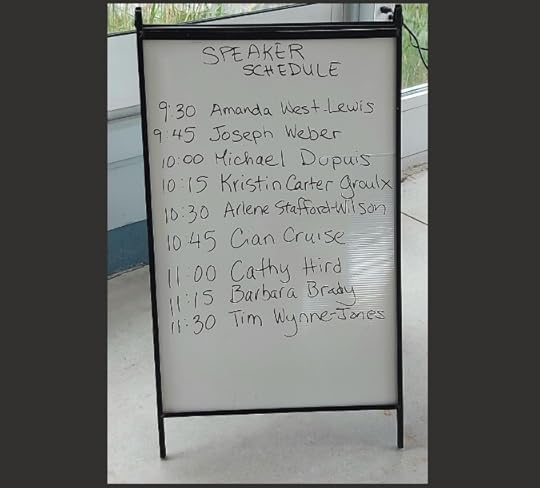 SPEAKER
SCHEDULE
9:30 Amanda West-Lewis
9:45 Joseph Weber
10:00 Michael Dupuis
10:15 Kristin Carter Groulx
10:30 Arlene Stafford-Wilson
10:45 Cian Cruise
11:00 Cathy Hird
11:15 Barbara Brady
11:30 Tim Wynne-Jones